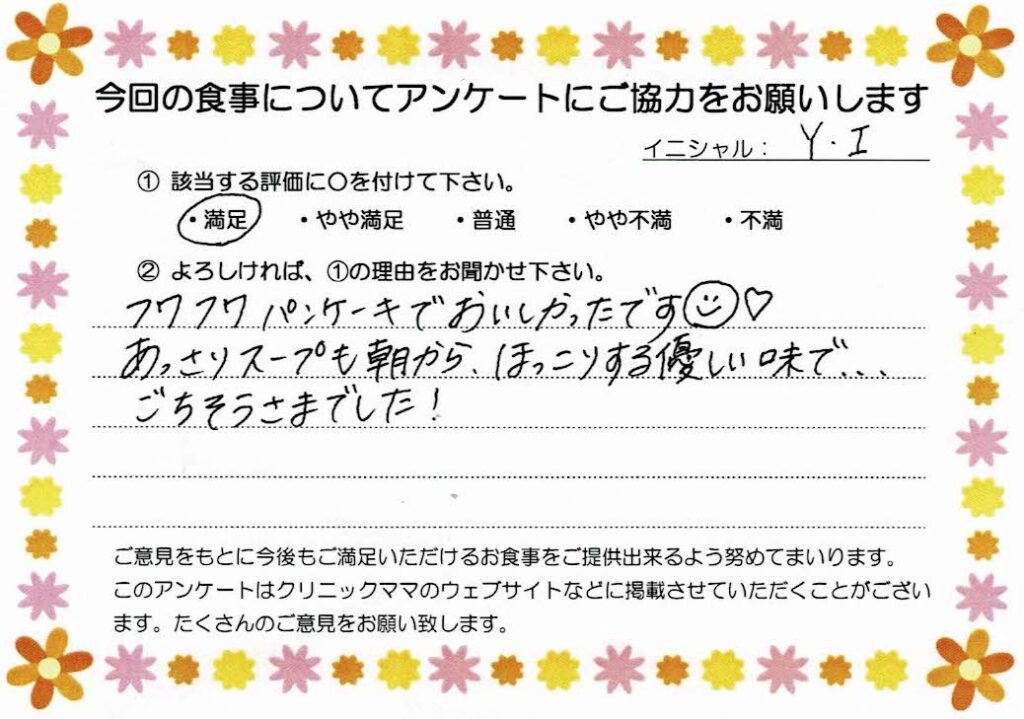 今回の食事についてアンケートにご協力をお願いします
イニシャル： Y・I
① 該当する評価に〇を付けて下さい。
・満足 ・やや満足 ・普通 ・やや不満 ・不満
② よろしければ、①の理由をお聞かせ下さい。
フワフワパンケーキでおいしかったです
あっさりスープも朝から、ほっこりする優しい味で、、、
ごちそうさまでした！
ご意見をもとに今後もご満足いただけるお食事をご提供出来るよう努めてまいります。
このアンケートはクリニックママのウェブサイトなどに掲載させていただくことがござい
ます。たくさんのご意見をお願い致します。